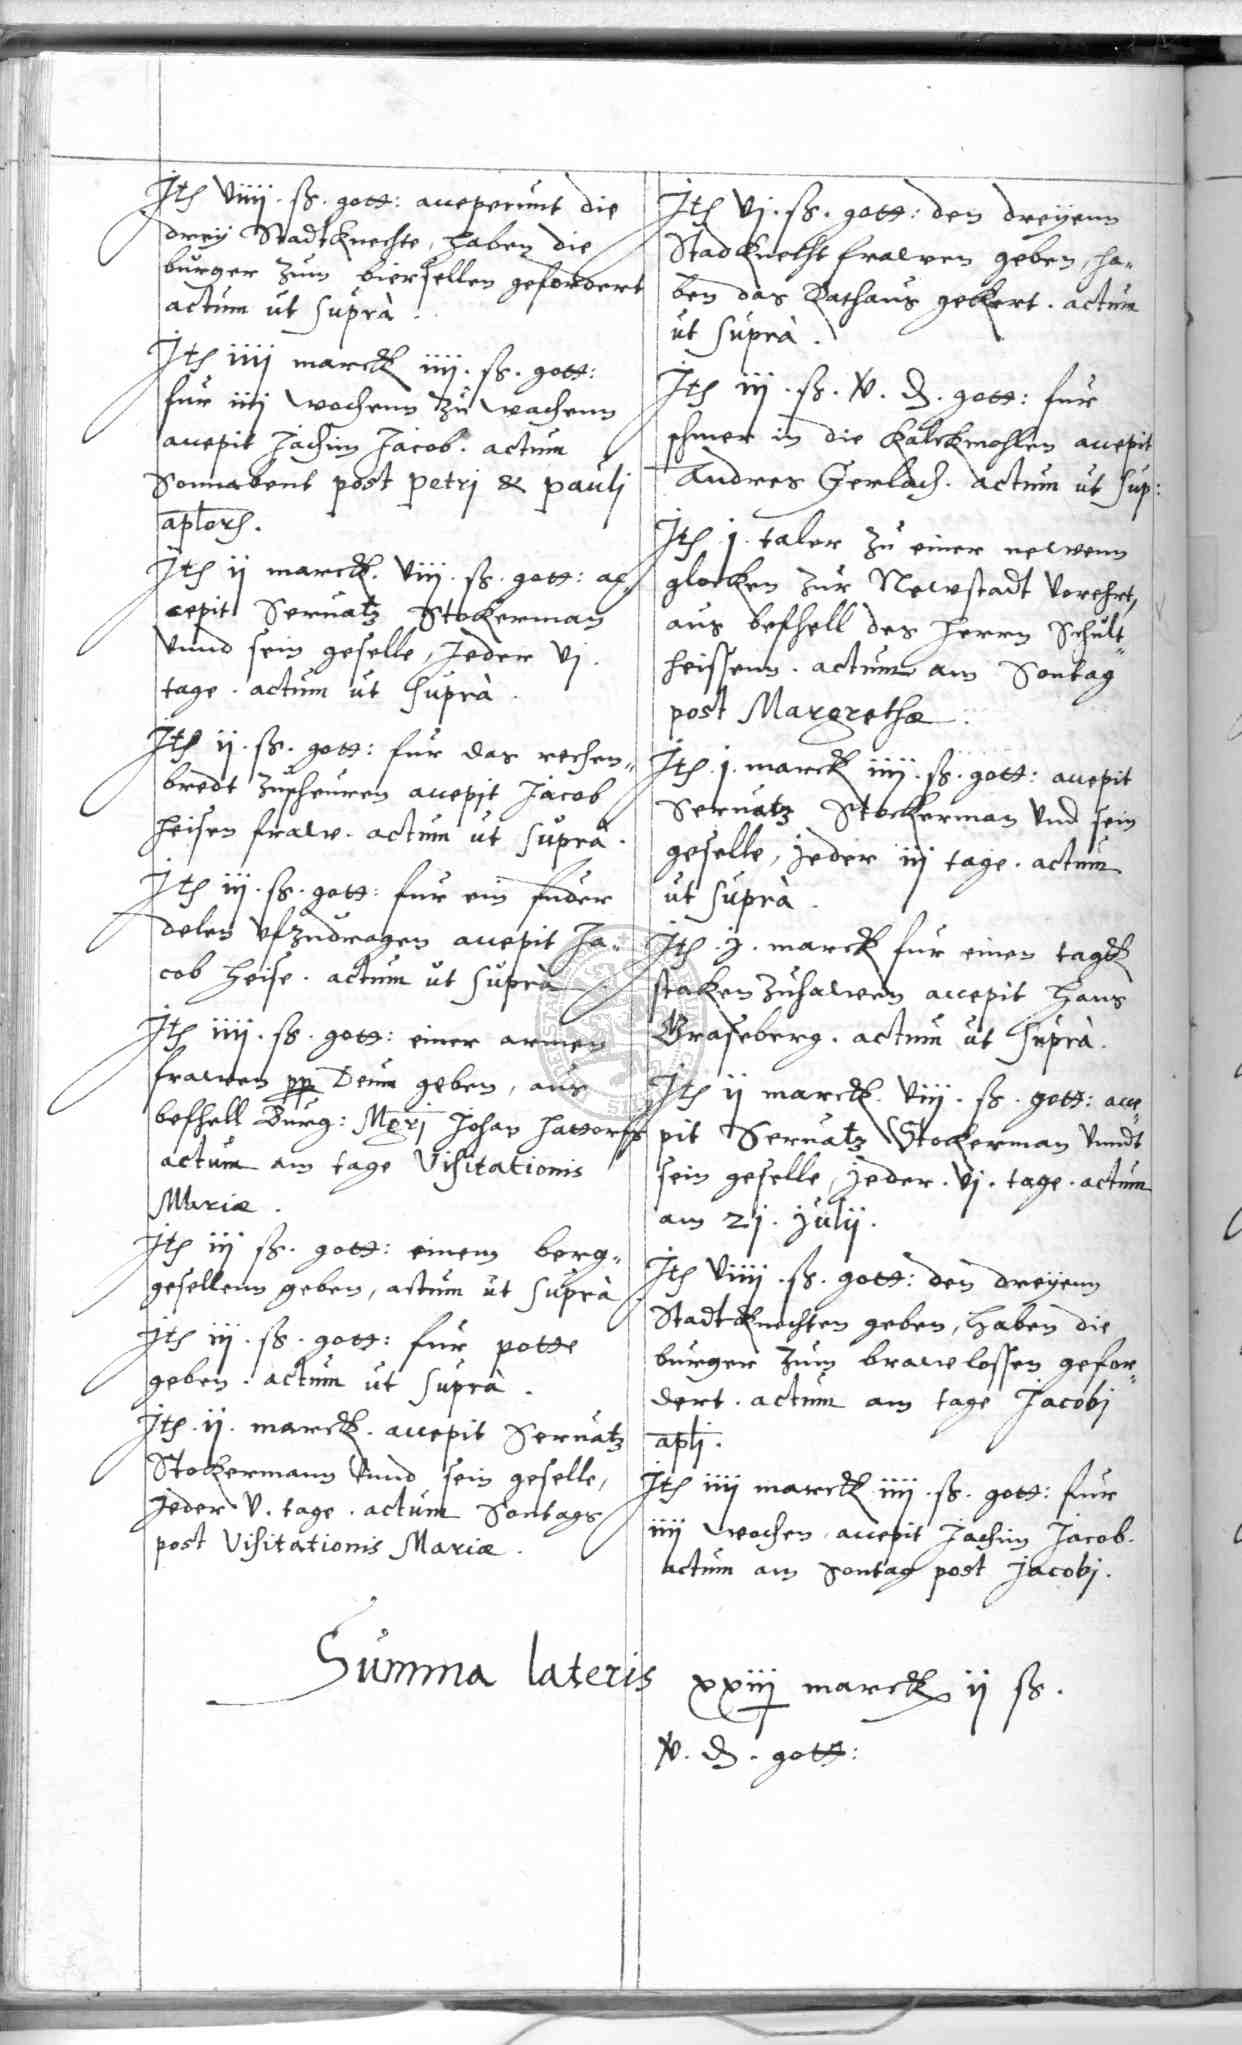 Ite viiij. ß. gott: acceperunt die
drey Stadtknechte, haben die
burger zum biersellen gefordert
actum ut suprà.
Ite iiij marck iiij. ß. gott:
fur iiij wochenn zu wachenn
accepit Jachim Jacob. actum
Sonnabent post Petri & Pauli
aplorum.
Ite ij marck. viij. ß. gott: ac„
cepit Seruatz Stokerman
vnnd sein geselle, Jeder vj.
tage. actum ut suprà.
Ite ij. ß. gott: fur das rechen„
bredt zuscheuren accepit Jacob
Heisen fraw. actum ut suprà.
Ite iij. ß. gott: fur ein fuder
delen vfzudragen accepit Ja„
cob Heise. actum ut suprà
Ite iiij. ß. gott: einer armen
frawen pp Deum geben, aus
befhell Burg: Mgri Johan Hattorfs
actum am tage Visitationis
Mariæ.
Ite iij ß. gott: einem berg„
gesellenn geben, actum ut suprà
Ite iij. ß. gott: fur potte
geben. actum ut suprà.
Ite. ij. marck. accepit Seruatz
Stokermann vnnd sein geselle,
Jeder v. tage. actum Sontags
post Visitationis Mariæ.
Ite vj. ß. gott: den dreyenn
Stadknecht frawen geben, ha„
ben das Rathaus gekert. actum
ut suprà.
Ite iij. ß. v. d. gott: fur
schmer in die Kalckmohlen accepit
Andres Gerlach. actum ut sup:
Ite. j. taler zu einer newenn
glocken zur Newstadt vorehrt,
aus befhell des Herrn Schult„
heissenn. actum am Sontag
post Margrethæ.
Ite. j. marck iiij. ß. gott: accepit
Seruatz Stockerman vnd sein
geselle, jeder iij tage. actum
ut suprà.
Ite. j. marck fur einen tagk
staken zuhawen accepit Hans
Graseberg. actum ut suprà.
Ite ij marck. viij. ß. gott: acce„
pit Seruatz Stokerman vnndt
sein geselle, jeder. vj. tage. actum
am 21. Julij.
Ite viiij. ß. gott: den dreyenn
Stadtknechten geben, haben die
burger zum brawlossen gefor„
dert. actum am tage Jacobi
apli.
Ite iiij marck iiij. ß. gott: fur
iiij wochen accepit Jachim Jacob.
actum am Sontag post Jacobi.
Summa lateris xxiij marck ij ß.
v. d. gott: